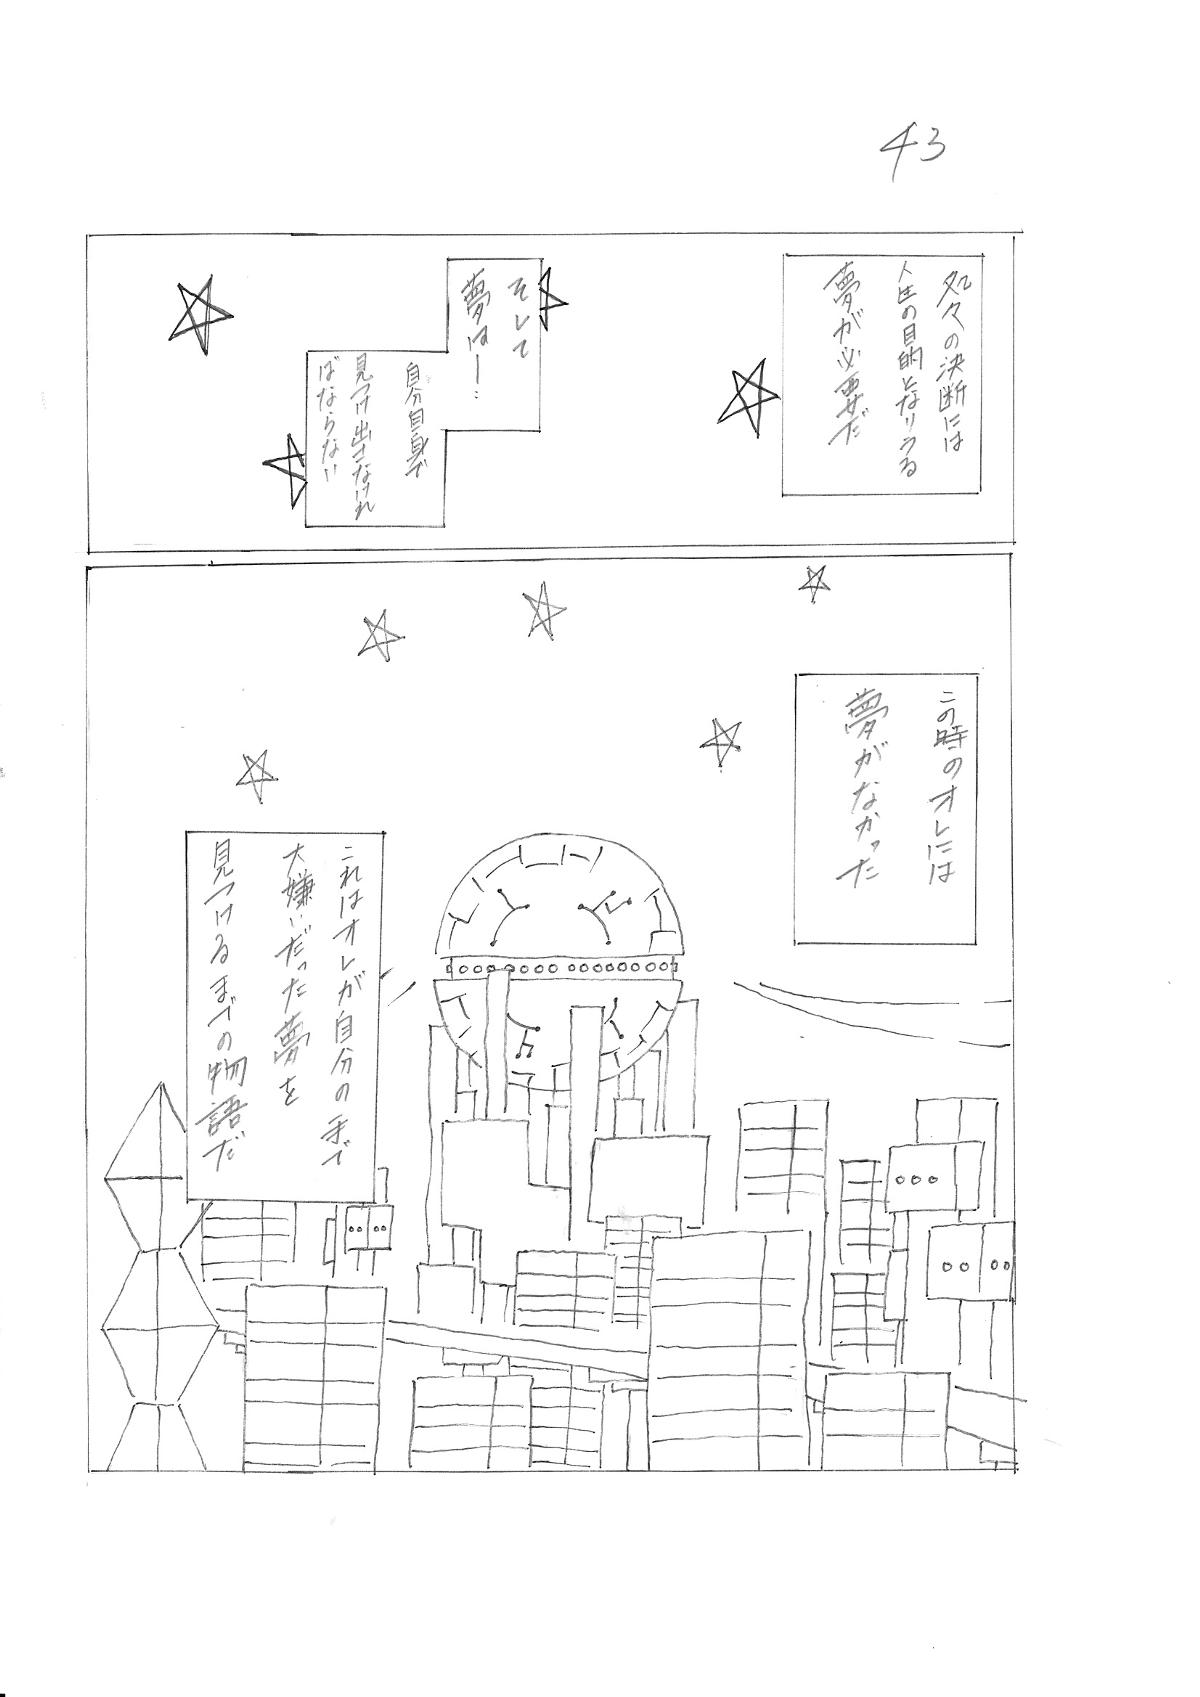 43
処々の決断には
人生の目的となりうる
夢が必要だ
そして
夢は―…
自分自身で
見つけ出さなけれ
ばならない
この時のオレには
夢がなかった
これはオレが自分の手で
大嫌いだった夢を
見つけるまでの物語だ